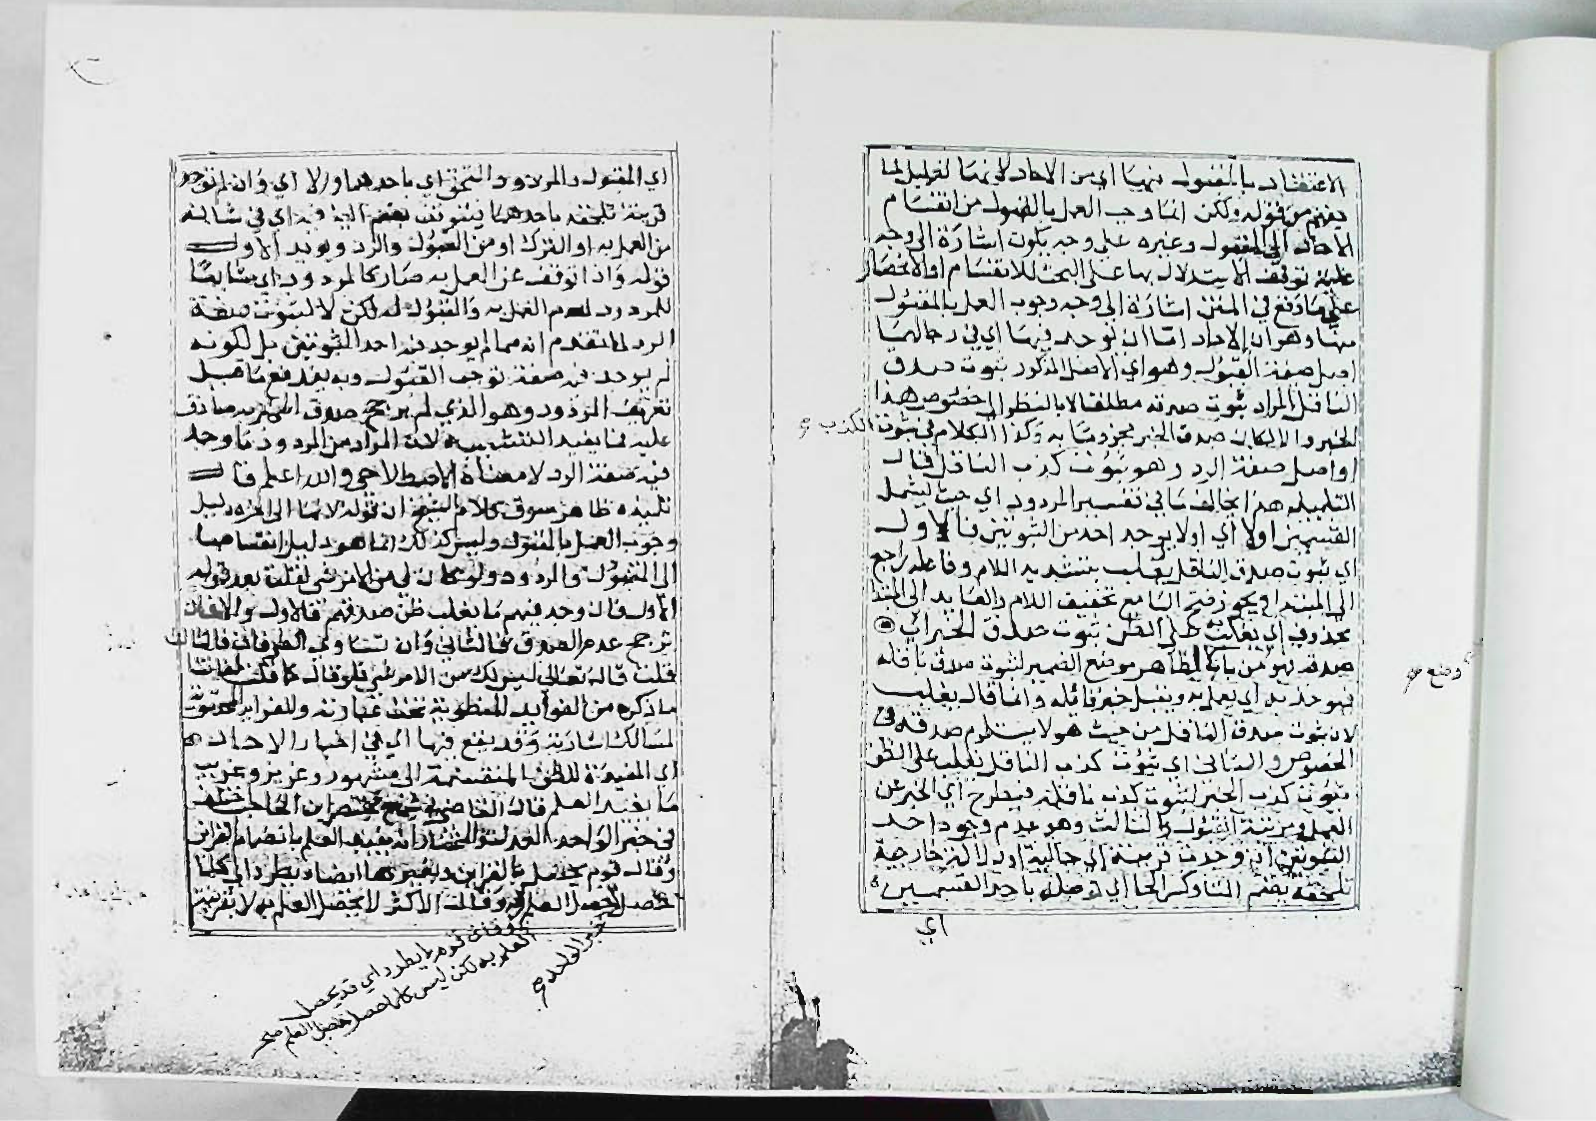 الاعتقاد بالمقبول منها اي من الاحاد لانها تعليل لما
يفهم من قوله ولكن انما وجب العمل بالمقبول من انقسام
الاحاد الى المقبول وغيره على وجه يكون اشارة الى وجه
عليه توقف الاستدلال بها على البحث للانقسام او الانحصار
على ما وقع في المتن اشارة الى وجه وجوب العمل بالمقبول
منها وهو ان الاحاد اما ان توجد فيها اي في رجالها
اصل صفة القبول وهو اي الاصل المذكور ثبوت صدق
الناقل المراد ثبوت صدقه مطلقا لا بالنظر الى خصوص هذا
الخبر والا لكان صدق الخبر مجزوما به وكذا الكلام في ثبوت
الكذب صح
او اصل صفة الرد وهو ثبوت كذب الناقل قال
التلميذ هذا يخالف ما في تفسير المردود اي حيث يشمل
القسمين اولا اي اولا يوجد احد من الثبوتين فالاول
اي ثبوت صدق الناقل يغلب بتشديد اللام وفاعله راجع
الى المبتدا ويجوز فتح التا مع تخفيف اللام والعايد الى المبتدا
محذوف اي يغلب على الظن ثبوت صدق الخبر اي
صدقه فهو من باب الظاهر موضع الضمير لثبوت صدق ناقله
وضع صح
فهو حذ به اي يعمل به ويقبل خبر قائله وانما قال يغلب
لان ثبوت صدق الناقل من حيث هو لا يستلزم صدقه في
الخصوص والثاني اي ثبوت كذب الناقل يغلب على الظن
ثبوت كذب الخبر لثبوت كذب ناقله فيطرح اي الخبر عن
العمل ومرتبة القبول والثالث وهو عدم وجود احد
الثبوتين ان وجدت قرينة اي حالية او دلالة خارجية
تلحقه بضم التا وكسر الحا اي توصله باحد القسمين
اي
اي المقبول والمردود التحق اي باحدهما والا اي وان لم توجد
قرينة تلحقه باحدهما فيتوقف بضم اليا فيه اي في شانه
من العمل به او الترك او من القبول والرد ويويد الاول
قوله واذا توقف عن العمل به صار كالمردود اي مشابها
للمردود لعدم العمل به والقبول له لكن لا لثبوت صفة
الرد لما تقدم انه مما لم يوجد فيه احد الثبوتين بل لكونه
لم يوجد فيه صفة توجب القبول وبه يندفع ما قيل
تعريف المردود وهو الذي لم يرجح صدق المخبر به صادق
عليه فما يفيد التشبيه لان المراد من المردود ما وجد
فيه صفة الرد لا معناه الاصطلاحي والله اعلم قال
تلميذه ظاهر سوق كلام الشيخ ان قوله لانها الى اخره دليل
وجوب العمل بالمقبول وليس كذلك انما هو دليل انقسامها
الى المقبول والمردود ولو كان لي من الامر شي لقلت بعد قوله
الاول فان وجد فيهم ما يغلب ظن صدقهم فالاول والا فان
ترجح عدم الصدق فالثاني وان تساوى الطرفان فالثالث
قلت قال تعالى ليس لك من الامر شي فلو قال كما قلت لفاتنا
ما ذكره من الفوايد المنطوية تحت عبارته والفرايد المحتوية
لمسالك اشارته وقد يقع فيها اي في اخبار الاحاد
اي المفيدة للظن المنقسمة الى مشهور وعزيز وغريب
ما يفيد العلم قال القاضي في شرح مختصر ابن الحاجب اختلف
في خبر الواحد العدل والمختار انه يفيد العلم بانضمام القراين
وقال قوم يحصل بالقراين وبغيرها ايضا ويطرد اي كلما
حصل خبر الواحد حصل العلم به وقال الاكثر لا يحصل العلم به لا بقرينة
خبر الواحد صح
وقال قوم لا يطرد اي قد يحصل
العلم به لكن ليس كلما حصل حصل العلم صح